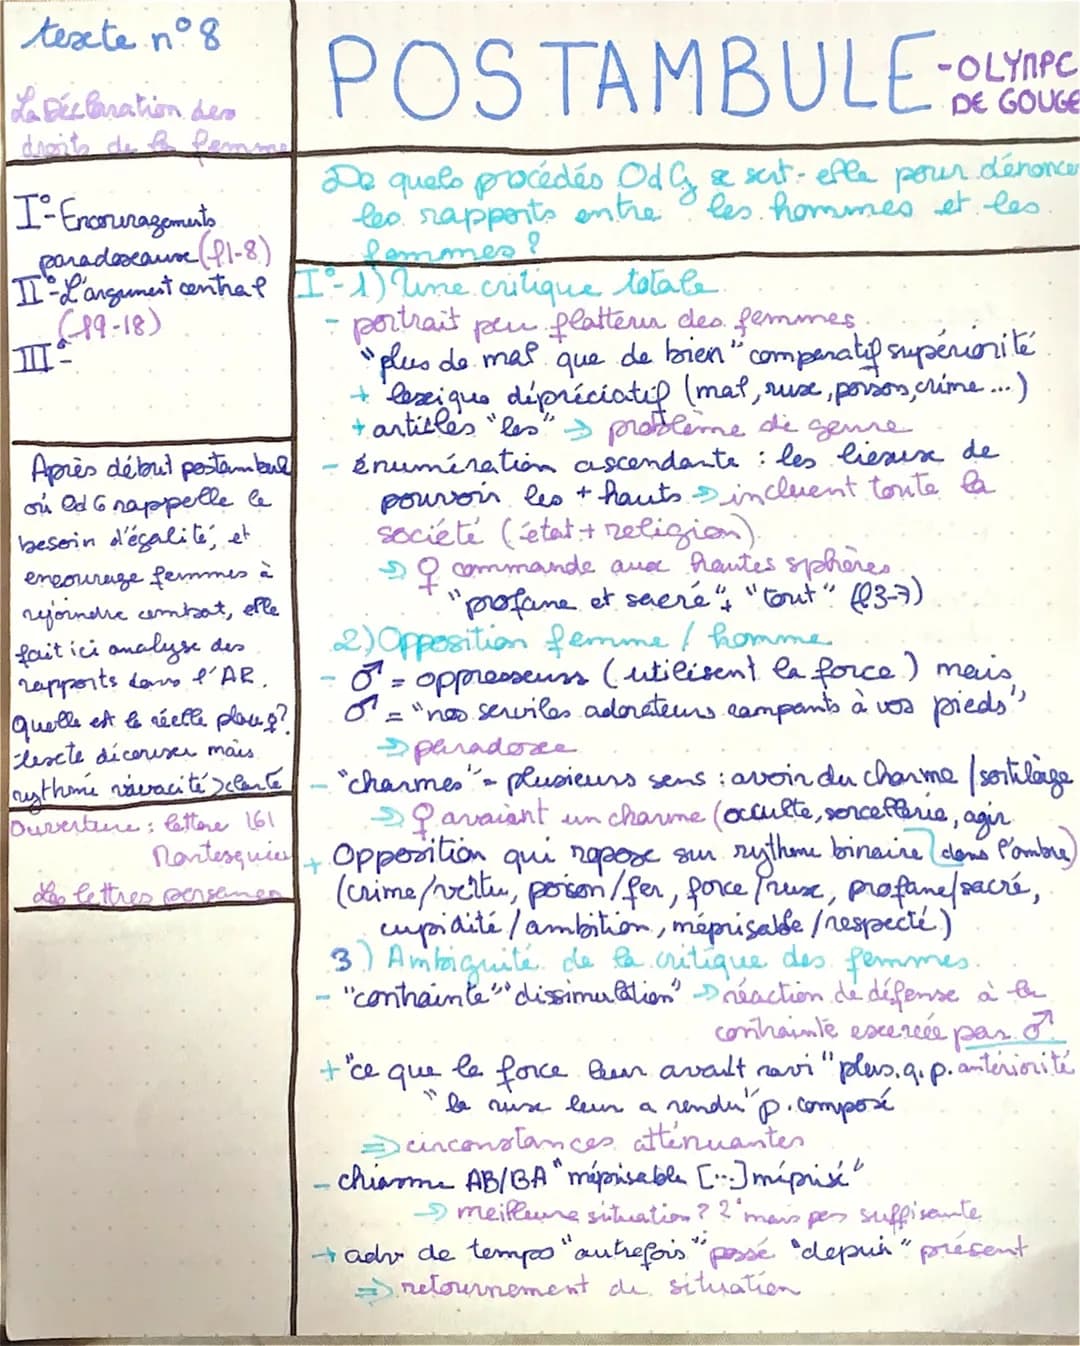 texte n°8
La Déclaration des
droits de la femme
POSTAMBULE
-OLYMPE
DE GOUGE
I°-Encouragements
paradoxaux (l1-8)
II°-L'argument central
(l9-18)
III°-
Après début postambul
où OdG rappelle le
besoin d'égalité, et
encourage femmes à
rejoindre combat, elle
fait ici analyse des
rapports dans l'AR.
Quelle est la réelle place ♀?
texte décousu mais
rythmé vivacité > clarté
Ouverture : lettre 161
Montesquieu
Les lettres persanes
De quels procédés OdG se sert-elle pour dénoncer
les rapports entre les hommes et les
femmes ?
I°-1) Une critique totale
- portrait peu flatteur des femmes
"plus de mal que de bien" comparatif supériorité
+ lexique dépréciatif (mal, ruse, poison, crime ...)
+ articles "les" → problème de genre
- énumération ascendante : les lieux de
pouvoir les + hauts → incluent toute la
société (état + religion)
→ ♀ commande aux hautes sphères
"profane et sacré", "tout" (l3-7)
2) Opposition femme / homme
- ♂ = oppresseurs (utilisent la force) mais
♂ = "nos serviles adorateurs rampants à vos pieds"
→ paradoxe
- "charmes" = plusieurs sens : avoir du charme / sortilège
→ ♀ avaient un charme (occulte, sorcellerie, agir
dans l'ombre)
+ Opposition qui repose sur rythme binaire
(crime/vertu, poison/fer, force/ruse, profane/sacré,
cupidité / ambition, méprisable / respecté)
3) Ambiguité de la critique des femmes
- "contrainte" "dissimulation" → réaction de défense à la
contrainte exercée par ♂
+ "ce que la force leur avait ravi" plus.q.p. antériorité
"la ruse leur a rendu" p.composé
⇒ circonstances atténuantes
- chiasme AB/BA "méprisable [...] méprisé"
→ meilleure situation ? mais pas suffisante
→ adv de temps "autrefois" passé "depuis" présent
⇒ retournement de situation